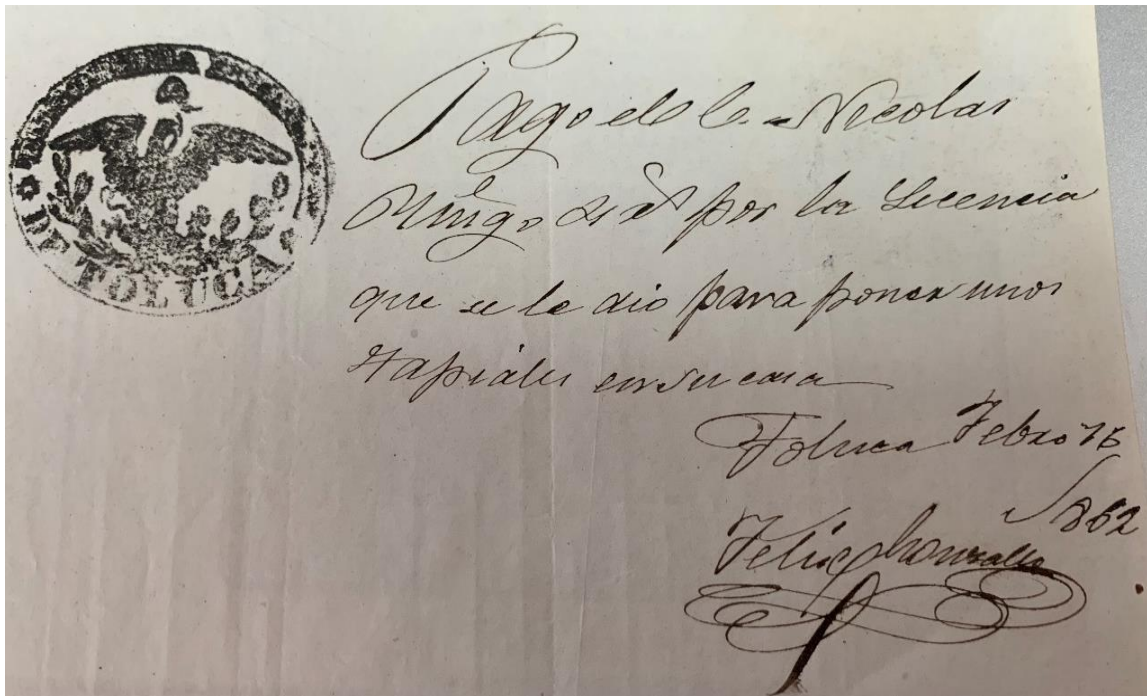 DE TOLUCA
Pago el C. Nicolas
por la Licencia
que se le dio para poner unos
tapiales en su casa
Toluca Febro 16
1862
Felix Gonzalez